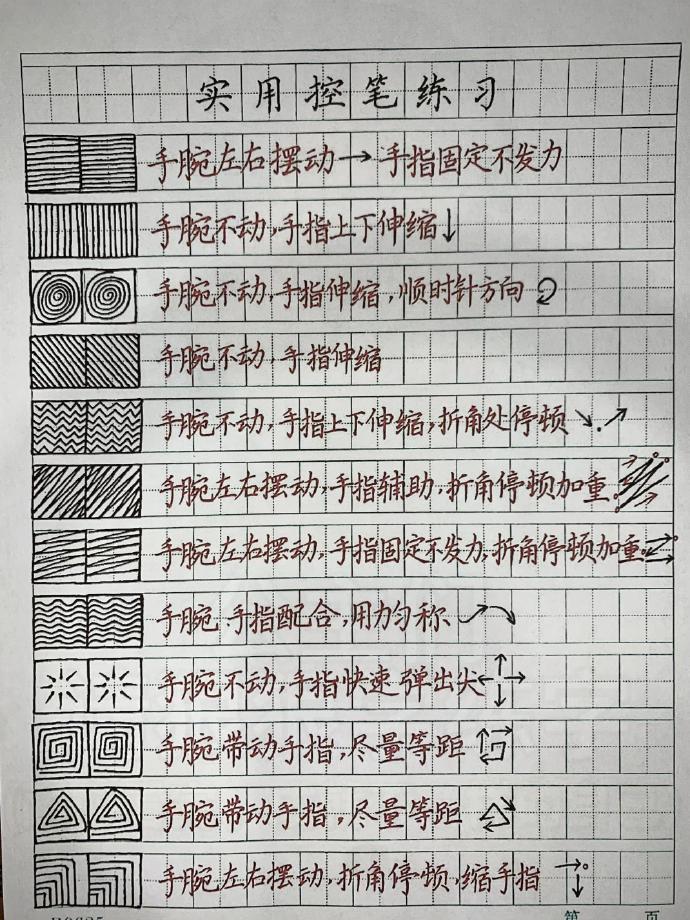 实用控笔练习
手腕左右摆动→手指固定不发力
手腕不动,手指上下伸缩↓
手腕不动,手指伸缩,顺时针方向
手腕不动,手指伸缩
手腕不动,手指上下伸缩,折角处停顿
手腕左右摆动,手指辅助,折角停顿加重。
手腕左右摆动,手指固定不发力,折角停顿加重。
手腕 手指配合,用力匀称
手腕不动,手指快速弹出尖
手腕带动手指,尽量等距
手腕带动手指,尽量等距
手腕左右摆动,折角停顿,缩手指
第 页